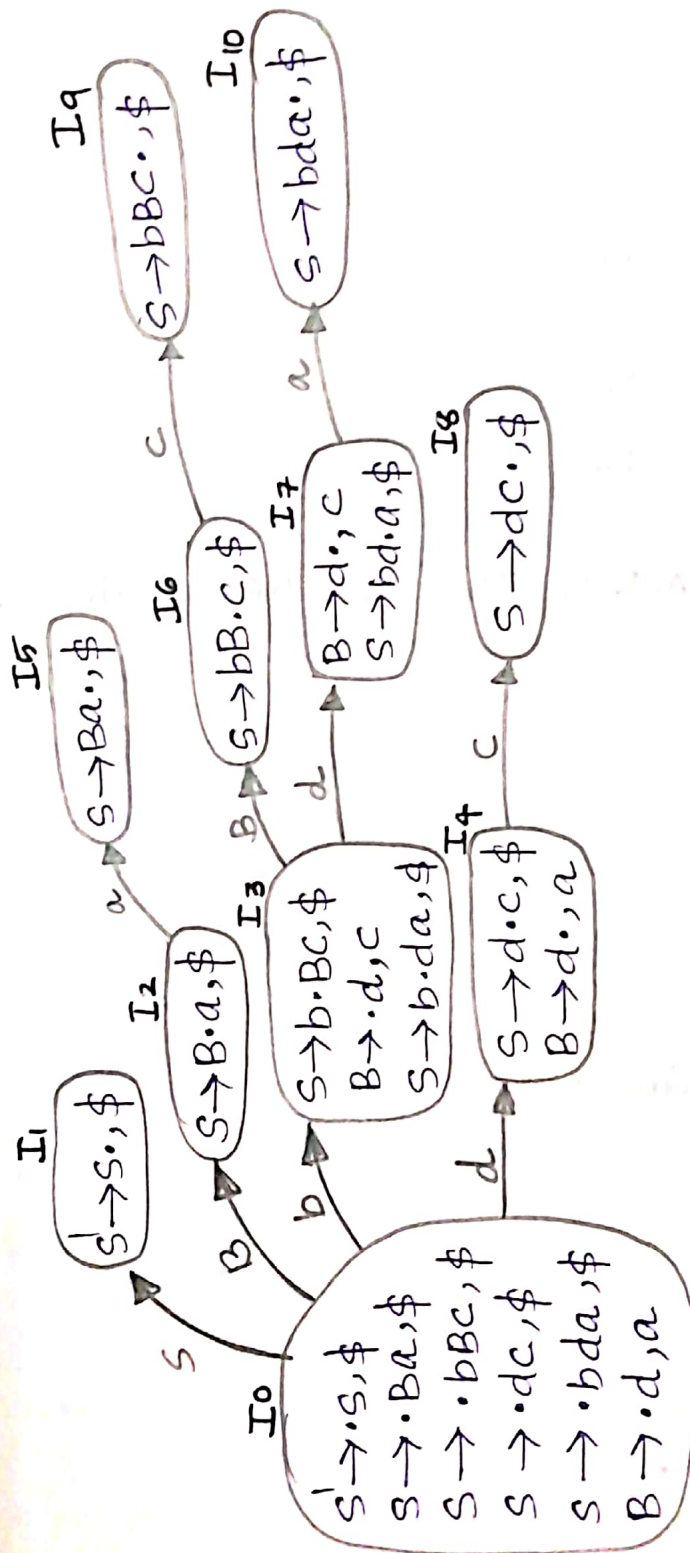 I0
S'→·S,$
S→·Ba,$
S→·bBC,$
S→·dC,$
S→·bda,$
B→·d,a
S
I1
S'→S·,$
B
I2
S→B·a,$
a
I5
S→Ba·,$
b
I3
S→b·BC,$
B→·d,C
S→b·da,$
B
I6
S→bB·C,$
C
I9
S→bBC·,$
d
I7
B→d·,C
S→bd·a,$
a
I10
S→bda·,$
d
I4
S→d·C,$
B→d·,a
C
I8
S→dC·,$